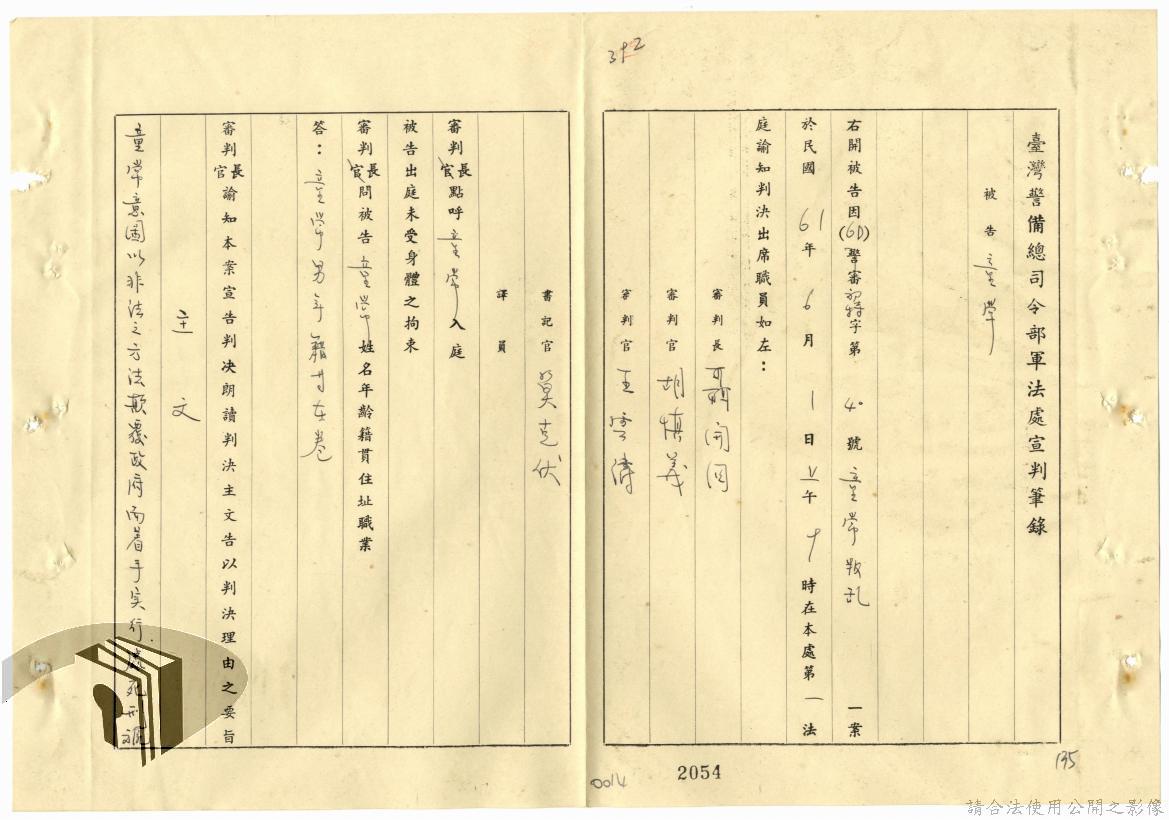 392
臺灣警備總司令部軍法處宣判筆錄
被告 童常
右開被告因(60)警審特字第 40 號 童常叛乱 一案
於民國 61 年 6 月 1 日 上午 十 時在本處第一法
庭諭知判決出席職員如左：
審判長 聶開國
審判官 胡慎義
審判官 王雲濤
書記官 莫克伏
譯員
審判長官點呼 童常 入庭
被告出庭未受身體之拘束
審判長官問被告 童常 姓名年齡籍貫住址職業
答：童常 男 年籍等在卷
審判長官諭知本案宣告判決朗讀判決主文告以判決理由之要旨
主文
童常意圖以非法之方法顛覆政府而着手实行處死刑褫
135
0014
2054
請合法使用公開之影像